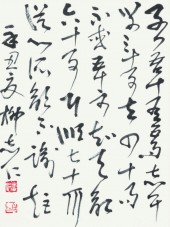 子曰吾十有五而志于
学三十而立四十而
不惑五十而知天命
六十而耳順七十而
從心所欲不踰矩